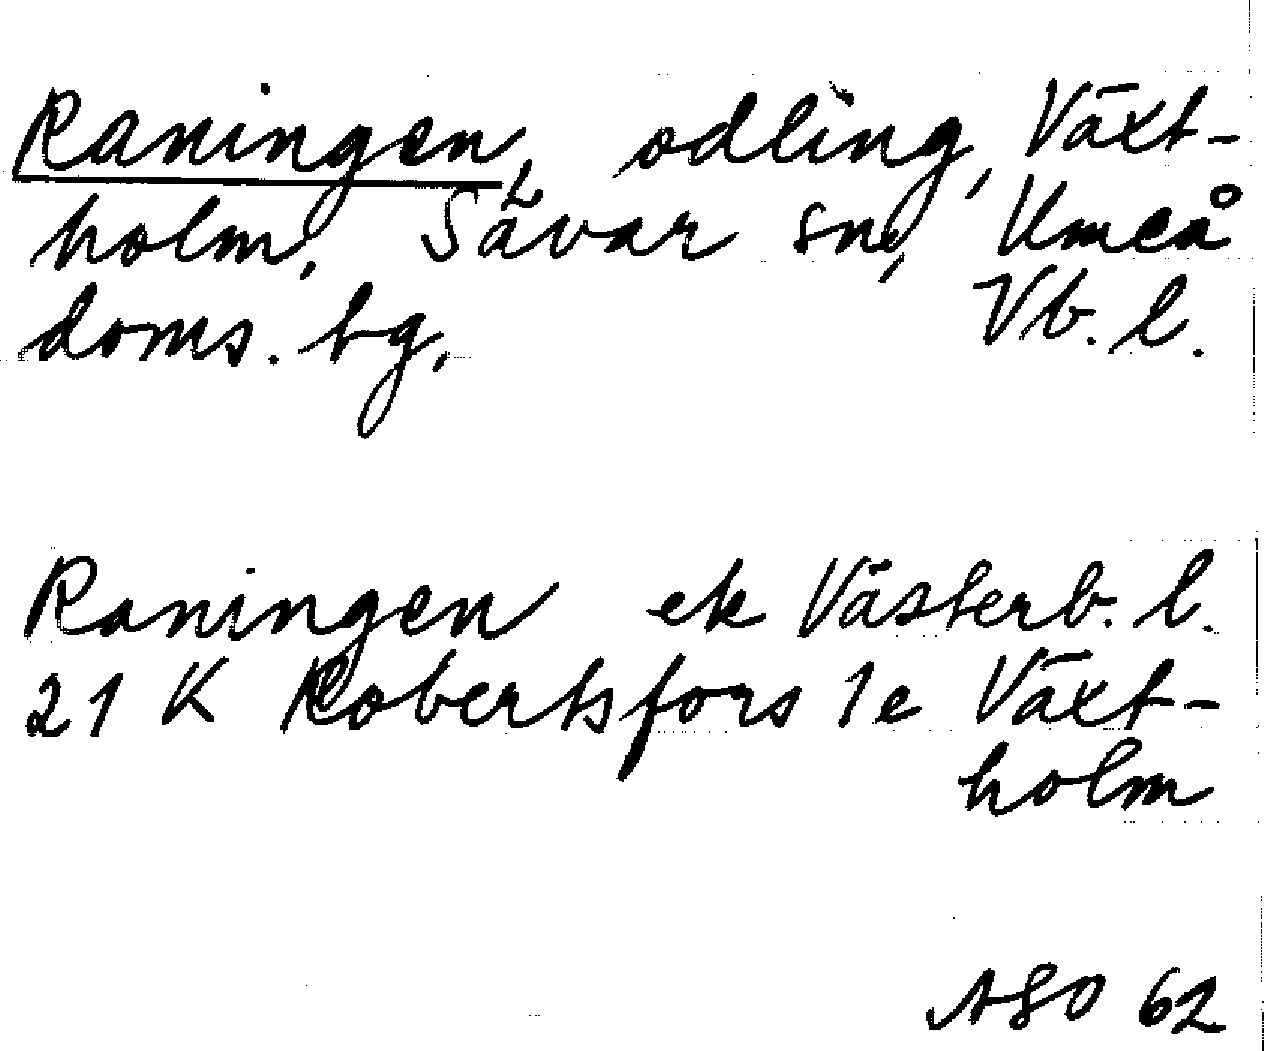 Raningen, odling, Växt-
holm, Sävar sn, Umeå
doms. bg, Vb. l.
Raningen ek Västerb. l.
21 K Robertsfors 1e Växt-
holm
ASO 62